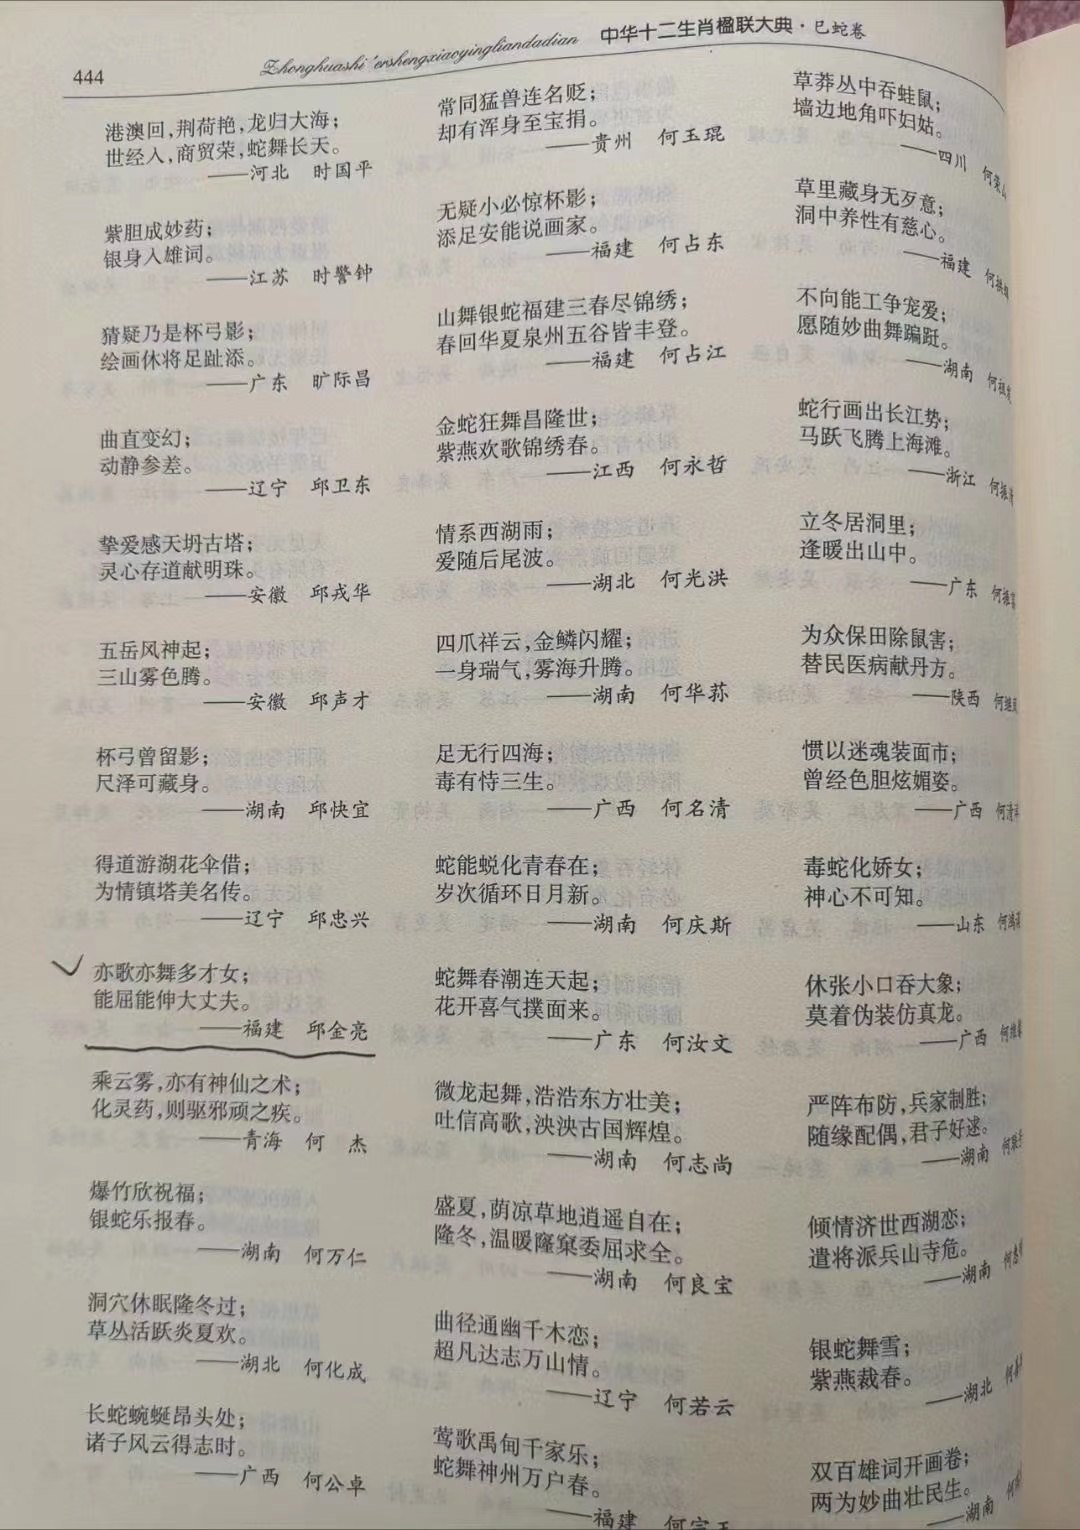 444
Zhonghuashi'ershengxiaoyingliandadian
中华十二生肖楹联大典·巳蛇卷
港澳回,荆荷艳,龙归大海;
世经入,商贸荣,蛇舞长天。
——河北 时国平
紫胆成妙药;
银身入雄词。
——江苏 时警钟
猜疑乃是杯弓影;
绘画休将足趾添。
——广东 旷际昌
曲直变幻;
动静参差。
——辽宁 邱卫东
挚爱感天坍古塔;
灵心存道献明珠。
——安徽 邱戎华
五岳风神起;
三山雾色腾。
——安徽 邱声才
杯弓曾留影;
尺泽可藏身。
——湖南 邱快宜
得道游湖花伞借;
为情镇塔美名传。
——辽宁 邱忠兴
亦歌亦舞多才女;
能屈能伸大丈夫。
——福建 邱金亮
乘云雾,亦有神仙之术;
化灵药,则驱邪顽之疾。
——青海 何 杰
爆竹欣祝福;
银蛇乐报春。
——湖南 何万仁
洞穴休眠隆冬过;
草丛活跃炎夏欢。
——湖北 何化成
长蛇蜿蜒昂头处;
诸子风云得志时。
——广西 何公卓
常同猛兽连名贬;
却有浑身至宝捐。
——贵州 何玉琨
无疑小必惊杯影;
添足安能说画家。
——福建 何占东
山舞银蛇福建三春尽锦绣;
春回华夏泉州五谷皆丰登。
——福建 何占江
金蛇狂舞昌隆世;
紫燕欢歌锦绣春。
——江西 何永哲
情系西湖雨;
爱随后尾波。
——湖北 何光洪
四爪祥云,金鳞闪耀;
一身瑞气,雾海升腾。
——湖南 何华荪
足无行四海;
毒有恃三生。
——广西 何名清
蛇能蜕化青春在;
岁次循环日月新。
——湖南 何庆斯
蛇舞春潮连天起;
花开喜气扑面来。
——广东 何汝文
微龙起舞,浩浩东方壮美;
吐信高歌,泱泱古国辉煌。
——湖南 何志尚
盛夏,荫凉草地逍遥自在;
隆冬,温暖窿窠委屈求全。
——湖南 何良宝
曲径通幽千木恋;
超凡达志万山情。
——辽宁 何若云
莺歌禹甸千家乐;
蛇舞神州万户春。
——福建 何宗玉
草莽丛中吞蛙鼠;
墙边地角吓妇姑。
——四川 何荣山
草里藏身无歹意;
洞中养性有慈心。
——福建 何
不向能工争宠爱;
愿随妙曲舞蹁跹。
——湖南 何祖
蛇行画出长江势;
马跃飞腾上海滩。
——浙江 何振
立冬居洞里;
逢暖出山中。
——广东 何振
为众保田除鼠害;
替民医病献丹方。
——陕西 何继
惯以迷魂装面市;
曾经色胆炫媚姿。
——广西 何清
毒蛇化娇女;
神心不可知。
——山东 何鸿
休张小口吞大象;
莫着伪装仿真龙。
——广西 何维
严阵布防,兵家制胜;
随缘配偶,君子好逑。
——湖南 何
倾情济世西湖恋;
遣将派兵山寺危。
——湖南 何
银蛇舞雪;
紫燕裁春。
——湖北 何
双百雄词开画卷;
两为妙曲壮民生。
——湖南 何